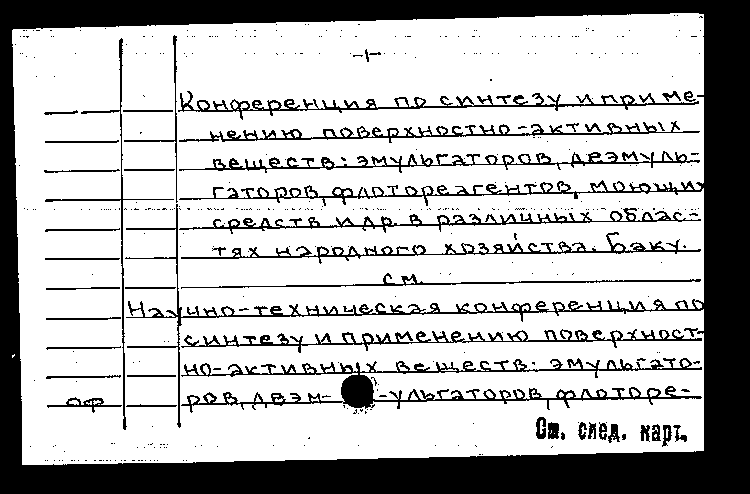 -1-
Конференция по синтезу и приме-
нению поверхностно-активных
веществ: эмульгаторов, деэмуль-
гаторов, флотореагентов, моющих
средств и др. в различных облас-
тях народного хозяйства. Баку.
см.
Научно-техническая конференция по
синтезу и применению поверхност-
но-активных веществ: эмульгато-
ров, деэм- -ульгаторов, флоторе-
оф
См. след. карт.